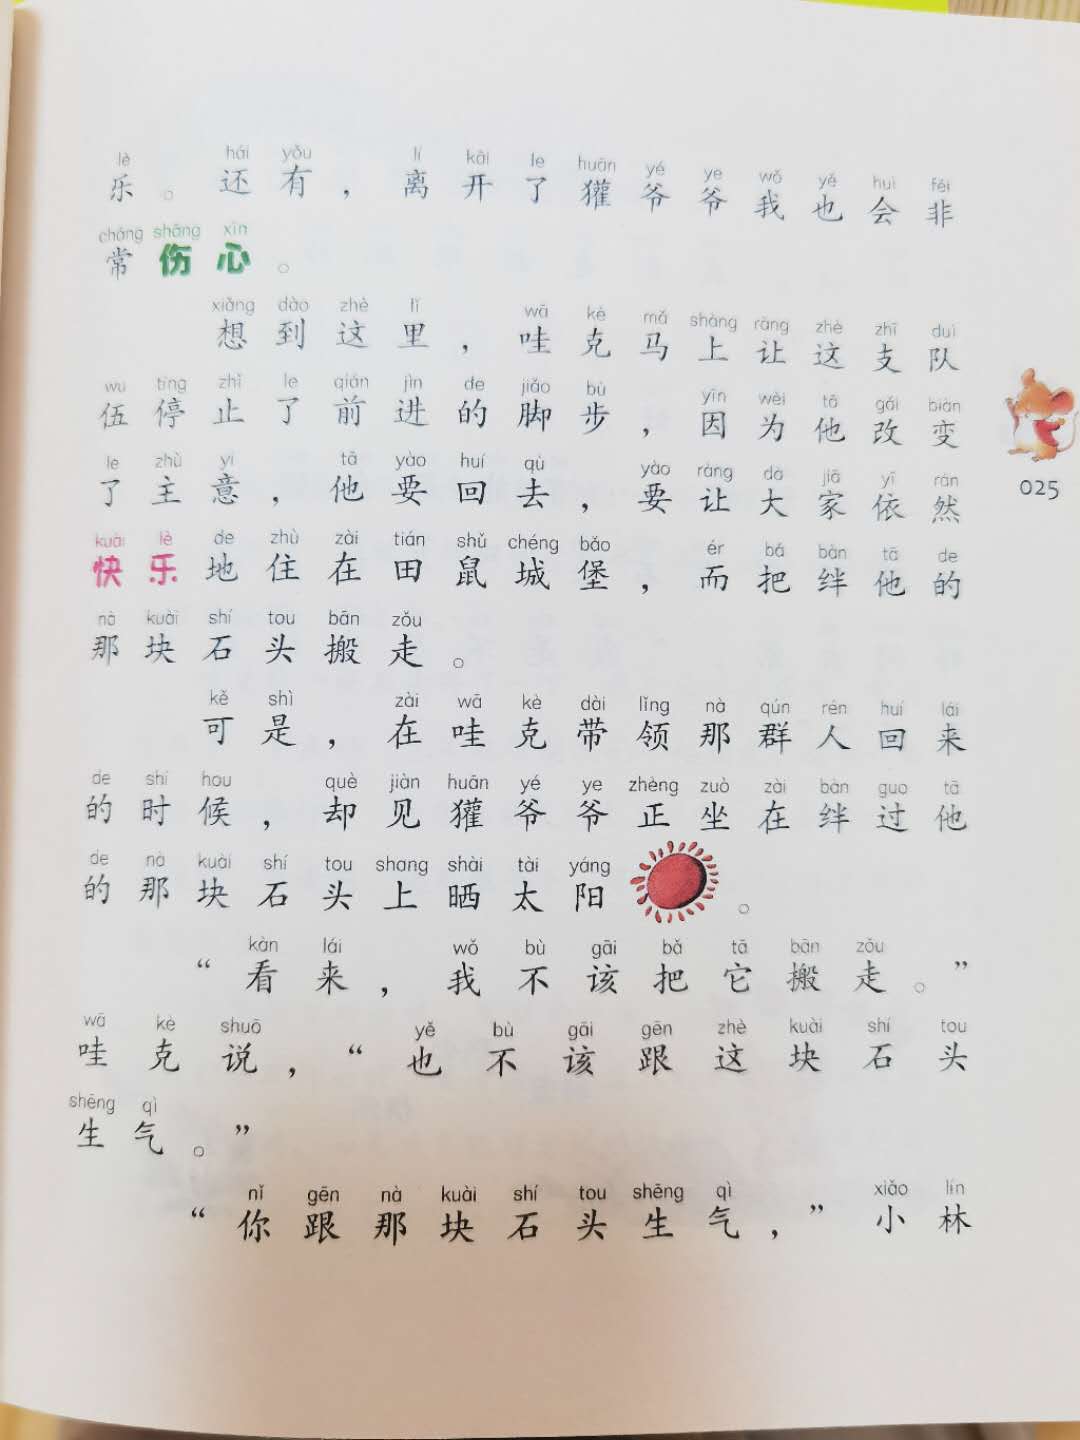 lè hái yǒu lí kāi le huān yé ye wǒ yě huì fēi
乐。还有，离开了獾爷爷我也会非
cháng shāng xīn
常伤心。
xiǎng dào zhè lǐ wā kè mǎ shàng ràng zhè zhī duì
想到这里，哇克马上让这支队
wu tíng zhǐ le qián jìn de jiǎo bù yīn wèi tā gǎi biàn
伍停止了前进的脚步，因为他改变
le zhǔ yi tā yào huí qù yào ràng dà jiā yī rán
了主意，他要回去，要让大家依然
kuài lè de zhù zài tián shǔ chéng bǎo ér bǎ bàn tā de
快乐地住在田鼠城堡，而把绊他的
nà kuài shí tou bān zǒu
那块石头搬走。
kě shì zài wā kè dài lǐng nà qún rén huí lái
可是，在哇克带领那群人回来
de shí hou què jiàn huān yé ye zhèng zuò zài bàn guo tā
的时候，却见獾爷爷正坐在绊过他
de nà kuài shí tou shang shài tài yáng
的那块石头上晒太阳。
kàn lái wǒ bù gāi bǎ tā bān zǒu
“看来，我不该把它搬走。”
wā kè shuō yě bù gāi gēn zhè kuài shí tou
哇克说，“也不该跟这块石头
shēng qì
生气。”
nǐ gēn nà kuài shí tou shēng qì xiǎo lín
“你跟那块石头生气，”小林
025